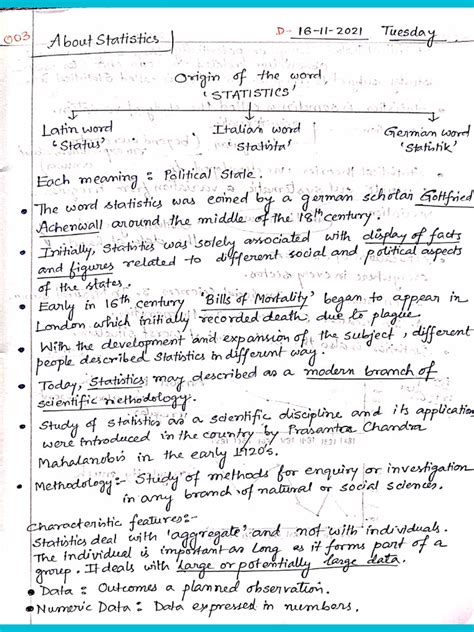 003
About Statistics
D- 16-11-2021 Tuesday
Origin of the word
'STATISTICS'
Latin word Italian word German word
'Status' 'Statista' 'Statistik'
Each meaning : Political State.
• The word statistics was coined by a german scholar Gottfried
Achenwall around the middle of the 18th century.
• Initially, Statistics was solely associated with display of facts
and figures related to different social and political aspects
of the states.
• Early in 16th century 'Bills of Mortality' began to appear in
London which initially recorded death due to plague.
• With the development and expansion of the subject, different
people described Statistics in different way.
• Today, Statistics may described as a modern branch of
scientific methodology.
• Study of statistics as a scientific discipline and its application
were introduced in the country by Prasanta Chandra
Mahalanobis in the early 1920's.
• Methodology:- Study of methods for enquiry or investigation
in any branch of natural or social sciences.
Characteristic features:-
Statistics deal with 'aggregate' and not with individuals.
The individual is important as long as it forms part of a
group. It deals with large or potentially large data.
• Data : Outcomes a planned observation.
• Numeric Data : Data expressed in numbers.